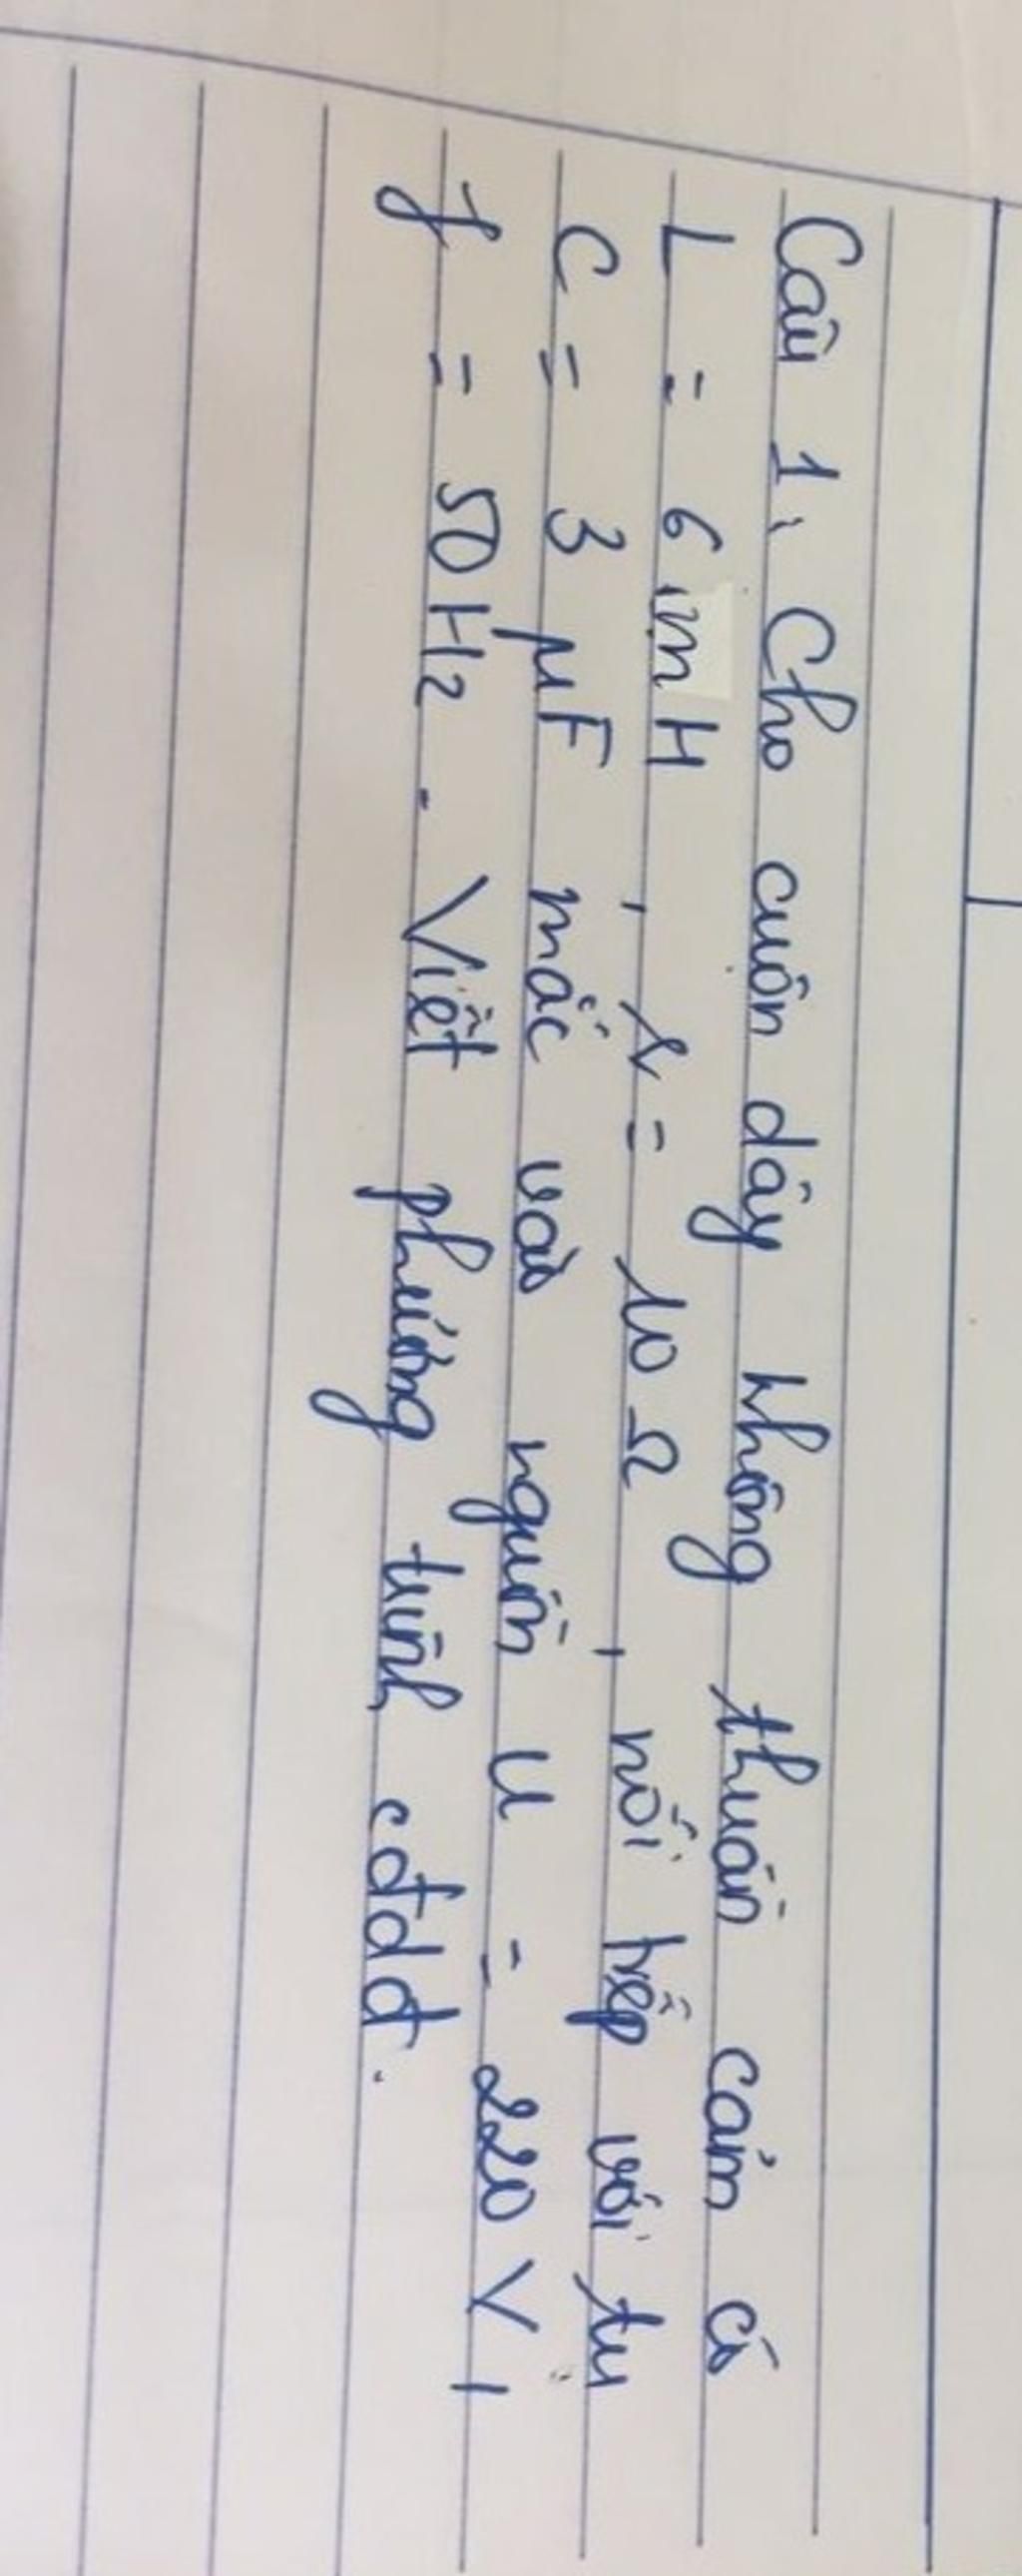 Câu 1, Cho cuộn dây không thuần cảm có
L = 6 mH, r = 10 Ω, nối tiếp với tụ
C = 3 µF mắc vào nguồn U = 220 V,
f = 50 Hz. Viết phương trình cđdđ.